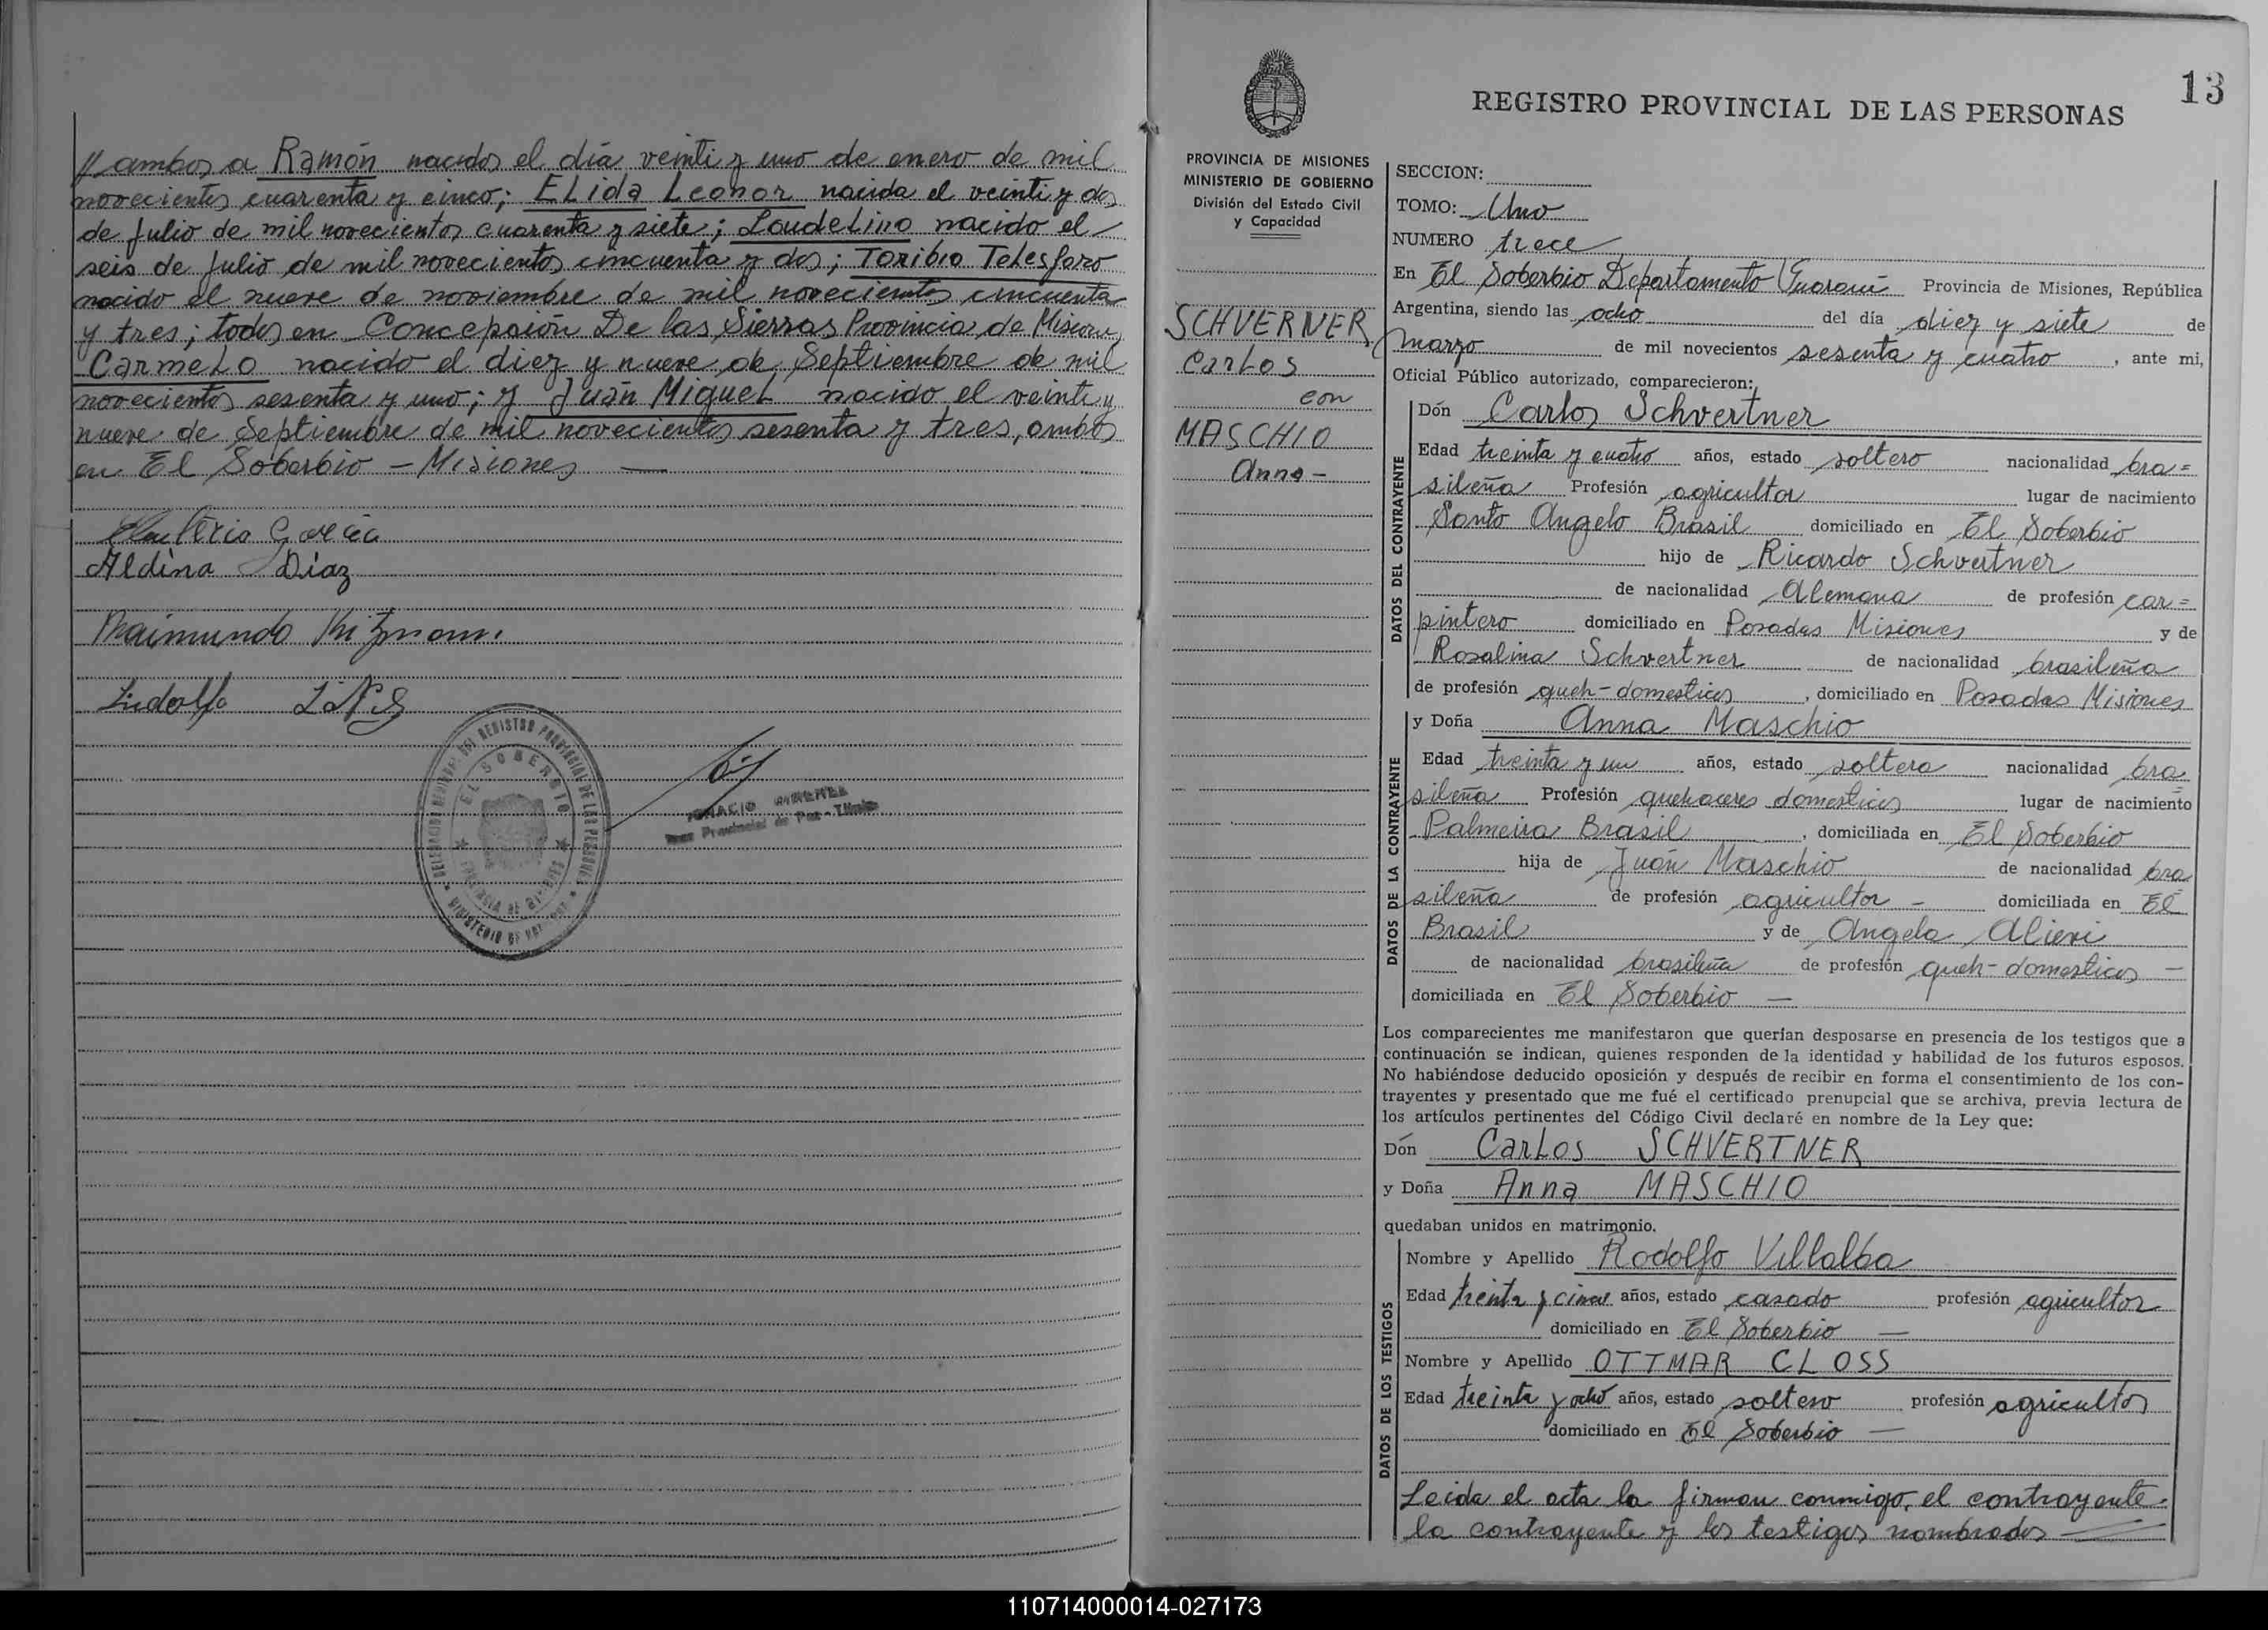 y ambos a Ramón nacidos el día veinti y uno de enero de mil
novecientos cuarenta y cinco; ELida Leonor nacida el veinti y dos
de Julio de mil novecientos cuarenta y siete; LaudeLino nacido el
seis de Julio de mil novecientos cincuenta y dos; Toribio Telesforo
nacido el nueve de noviembre de mil novecientos cincuenta
y tres; todos en Concepción De las Sierras Provincia de Misiones,
CarmeLo nacido el diez y nueve de Septiembre de mil
novecientos sesenta y uno; y Juan MigueL nacido el veinti y
nueve de Septiembre de mil novecientos sesenta y tres, ambos
en El Soberbio - Misiones —
Garcia
Aldina Diaz
Raimundo
Lindolfo
DEL REGISTRO PROVINCIAL DE LAS PERSONAS
EL SOBERBIO
PROVINCIA DE MISIONES
MINISTERIO DE
IGNACIO GIMENEZ
Juez Provincial de Paz - Titular
13
REGISTRO PROVINCIAL DE LAS PERSONAS
PROVINCIA DE MISIONES
MINISTERIO DE GOBIERNO
División del Estado Civil
y Capacidad
SCHVERNER
CarLos
con
MASCHIO
Anna -
SECCION:
TOMO: Uno
NUMERO trece
En El Soberbio Departamento Guaraní Provincia de Misiones, República
Argentina, siendo las ocho del día diez y siete de
marzo de mil novecientos sesenta y cuatro, ante mi,
Oficial Público autorizado, comparecieron:
DATOS DEL CONTRAYENTE
Dón Carlos Schvertner
Edad treinta y cuatro años, estado soltero nacionalidad bra=
sileña Profesión agricultor lugar de nacimiento
Santo Angelo Brasil domiciliado en El Soberbio
hijo de Ricardo Schvertner
de nacionalidad Alemana de profesión car=
pintero domiciliado en Posadas Misiones y de
Rosalina Schvertner de nacionalidad brasileña
de profesión queh-domesticos, domiciliado en Posadas Misiones
DATOS DE LA CONTRAYENTE
y Doña Anna Maschio
Edad treinta y un años, estado soltera nacionalidad bra
sileña Profesión quehaceres domesticos lugar de nacimiento
Palmeira Brasil, domiciliada en El Soberbio
hija de Juan Maschio de nacionalidad bra
sileña de profesión agricultor - domiciliada en El
Brasil y de Angela Alieri
de nacionalidad brasileña de profesión queh-domesticos —
domiciliada en El Soberbio —
Los comparecientes me manifestaron que querían desposarse en presencia de los testigos que a
continuación se indican, quienes responden de la identidad y habilidad de los futuros esposos.
No habiéndose deducido oposición y después de recibir en forma el consentimiento de los con-
trayentes y presentado que me fué el certificado prenupcial que se archiva, previa lectura de
los artículos pertinentes del Código Civil declaré en nombre de la Ley que:
Dón CarLos SCHVERTNER
y Doña Anna MASCHIO
quedaban unidos en matrimonio.
DATOS DE LOS TESTIGOS
Nombre y Apellido Rodolfo Villalba
Edad treinta y cinco años, estado casado profesión agricultor
domiciliado en El Soberbio —
Nombre y Apellido OTTMAR CLOSS
Edad treinta y ocho años, estado soltero profesión agricultor
domiciliado en El Soberbio —
Leida el acta la firman conmigo, el contrayente
la contrayente y los testigos nombrados —
110714000014-027173